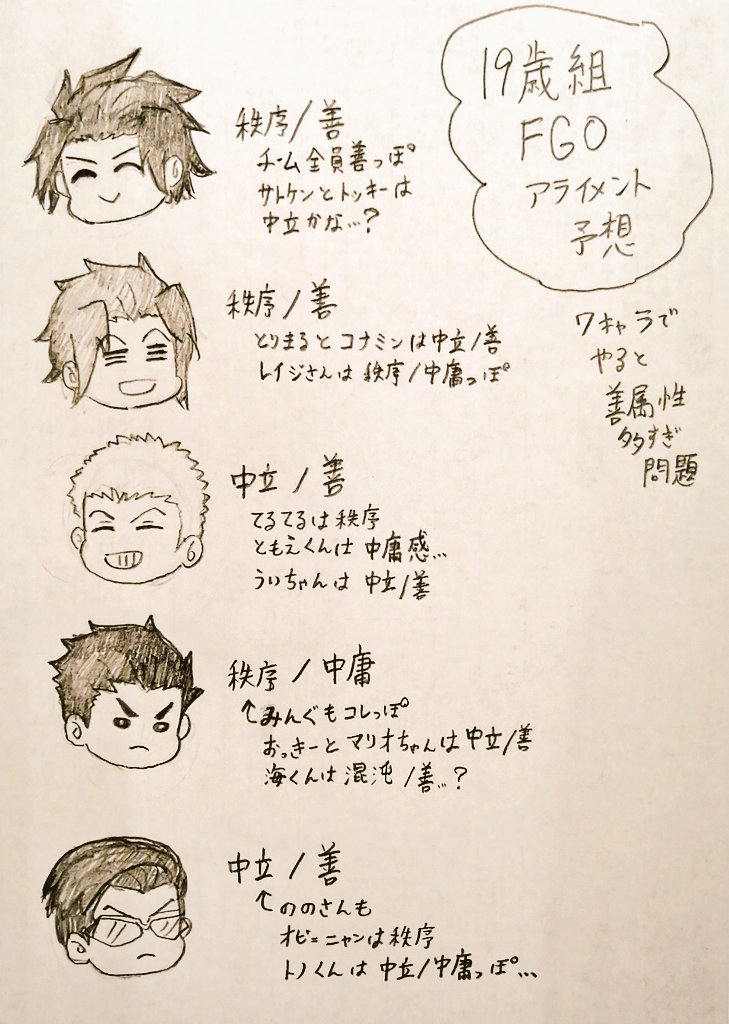 19歳組
FGO
アライメント
予想
ワキャラで
やると
善属性
多すぎ
問題
秩序/善
チーム全員善っぽ
サトケンとトッキーは
中立かな…?
秩序/善
とりまるとコナミンは中立/善
レイジさんは秩序/中庸っぽ
中立/善
てるてるは秩序
ともえくんは中庸感…
ういちゃんは中立/善
秩序/中庸
↑みんぐもコレっぽ
おっきーとマリオちゃんは中立/善
海くんは混沌/善…?
中立/善
↑ののさんも
オビニャンは秩序
トノくんは中立/中庸っぽ…